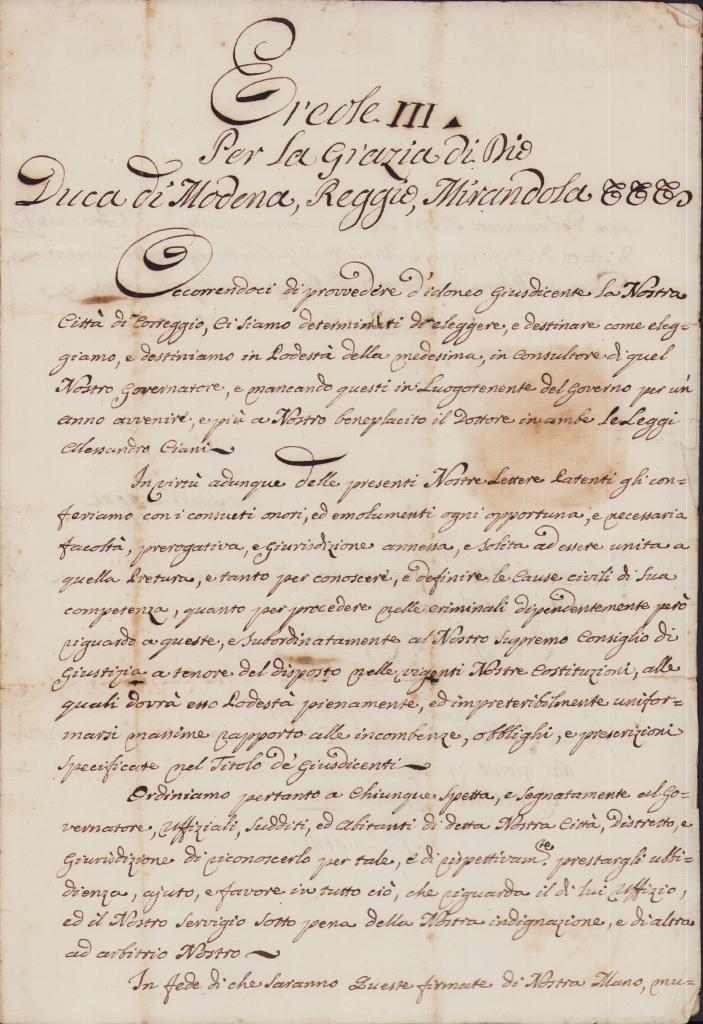 Ercole III.
Per la Grazia di Dio
Duca di Modena, Reggio, Mirandola &&&
Occorrendoci di provvedere d'idoneo Giusdicente la Nostra
Città di Correggio, Ci siamo determinati di eleggere, e destinare come eleg-
giamo, e destiniamo in Podestà della medesima, in Consultore di quel
Nostro Governatore, e mancando questi in Luogotenente del Governo per un
anno avvenire, e più a Nostro beneplacito il Dottore in ambe le Leggi
Alessandro Ciani
In virtù adunque delle presenti Nostre Lettere Patenti gli con-
feriamo con i consueti onori, ed emolumenti ogni opportuna, e necessaria
facoltà, prerogativa, e Giurisdizione annessa, e solita ad essere unita a
quella Pretura, e tanto per conoscere, e definire le Cause civili di Sua
competenza, quanto per procedere nelle criminali dipendentemente però
riguardo a queste, e subordinatamente al Nostro Supremo Consiglio di
Giustizia a tenore del disposto nelle vigenti Nostre Costituzioni, alle
quali dovrà esso Podestà pienamente, ed impreteribilmente unifor-
marsi massime rapporto alle incombenze, obblighi, e prescrizioni
specificate nel Titolo de' Giusdicenti
Ordiniamo pertanto a Chiunque spetta, e segnatamente al Go-
vernatore, Uffiziali, Sudditi, ed Abitanti di detta Nostra Città, Distretto, e
Giurisdizione di riconoscerlo per tale, e di rispettivam.te prestargli ubbi-
dienza, ajuto, e favore in tutto ciò, che riguarda il di lui Uffizio,
ed il Nostro Servigio sotto pena della Nostra indignazione, e di altra
ad arbitrio Nostro
In fede di che saranno Queste firmate di Nostra Mano, mu-